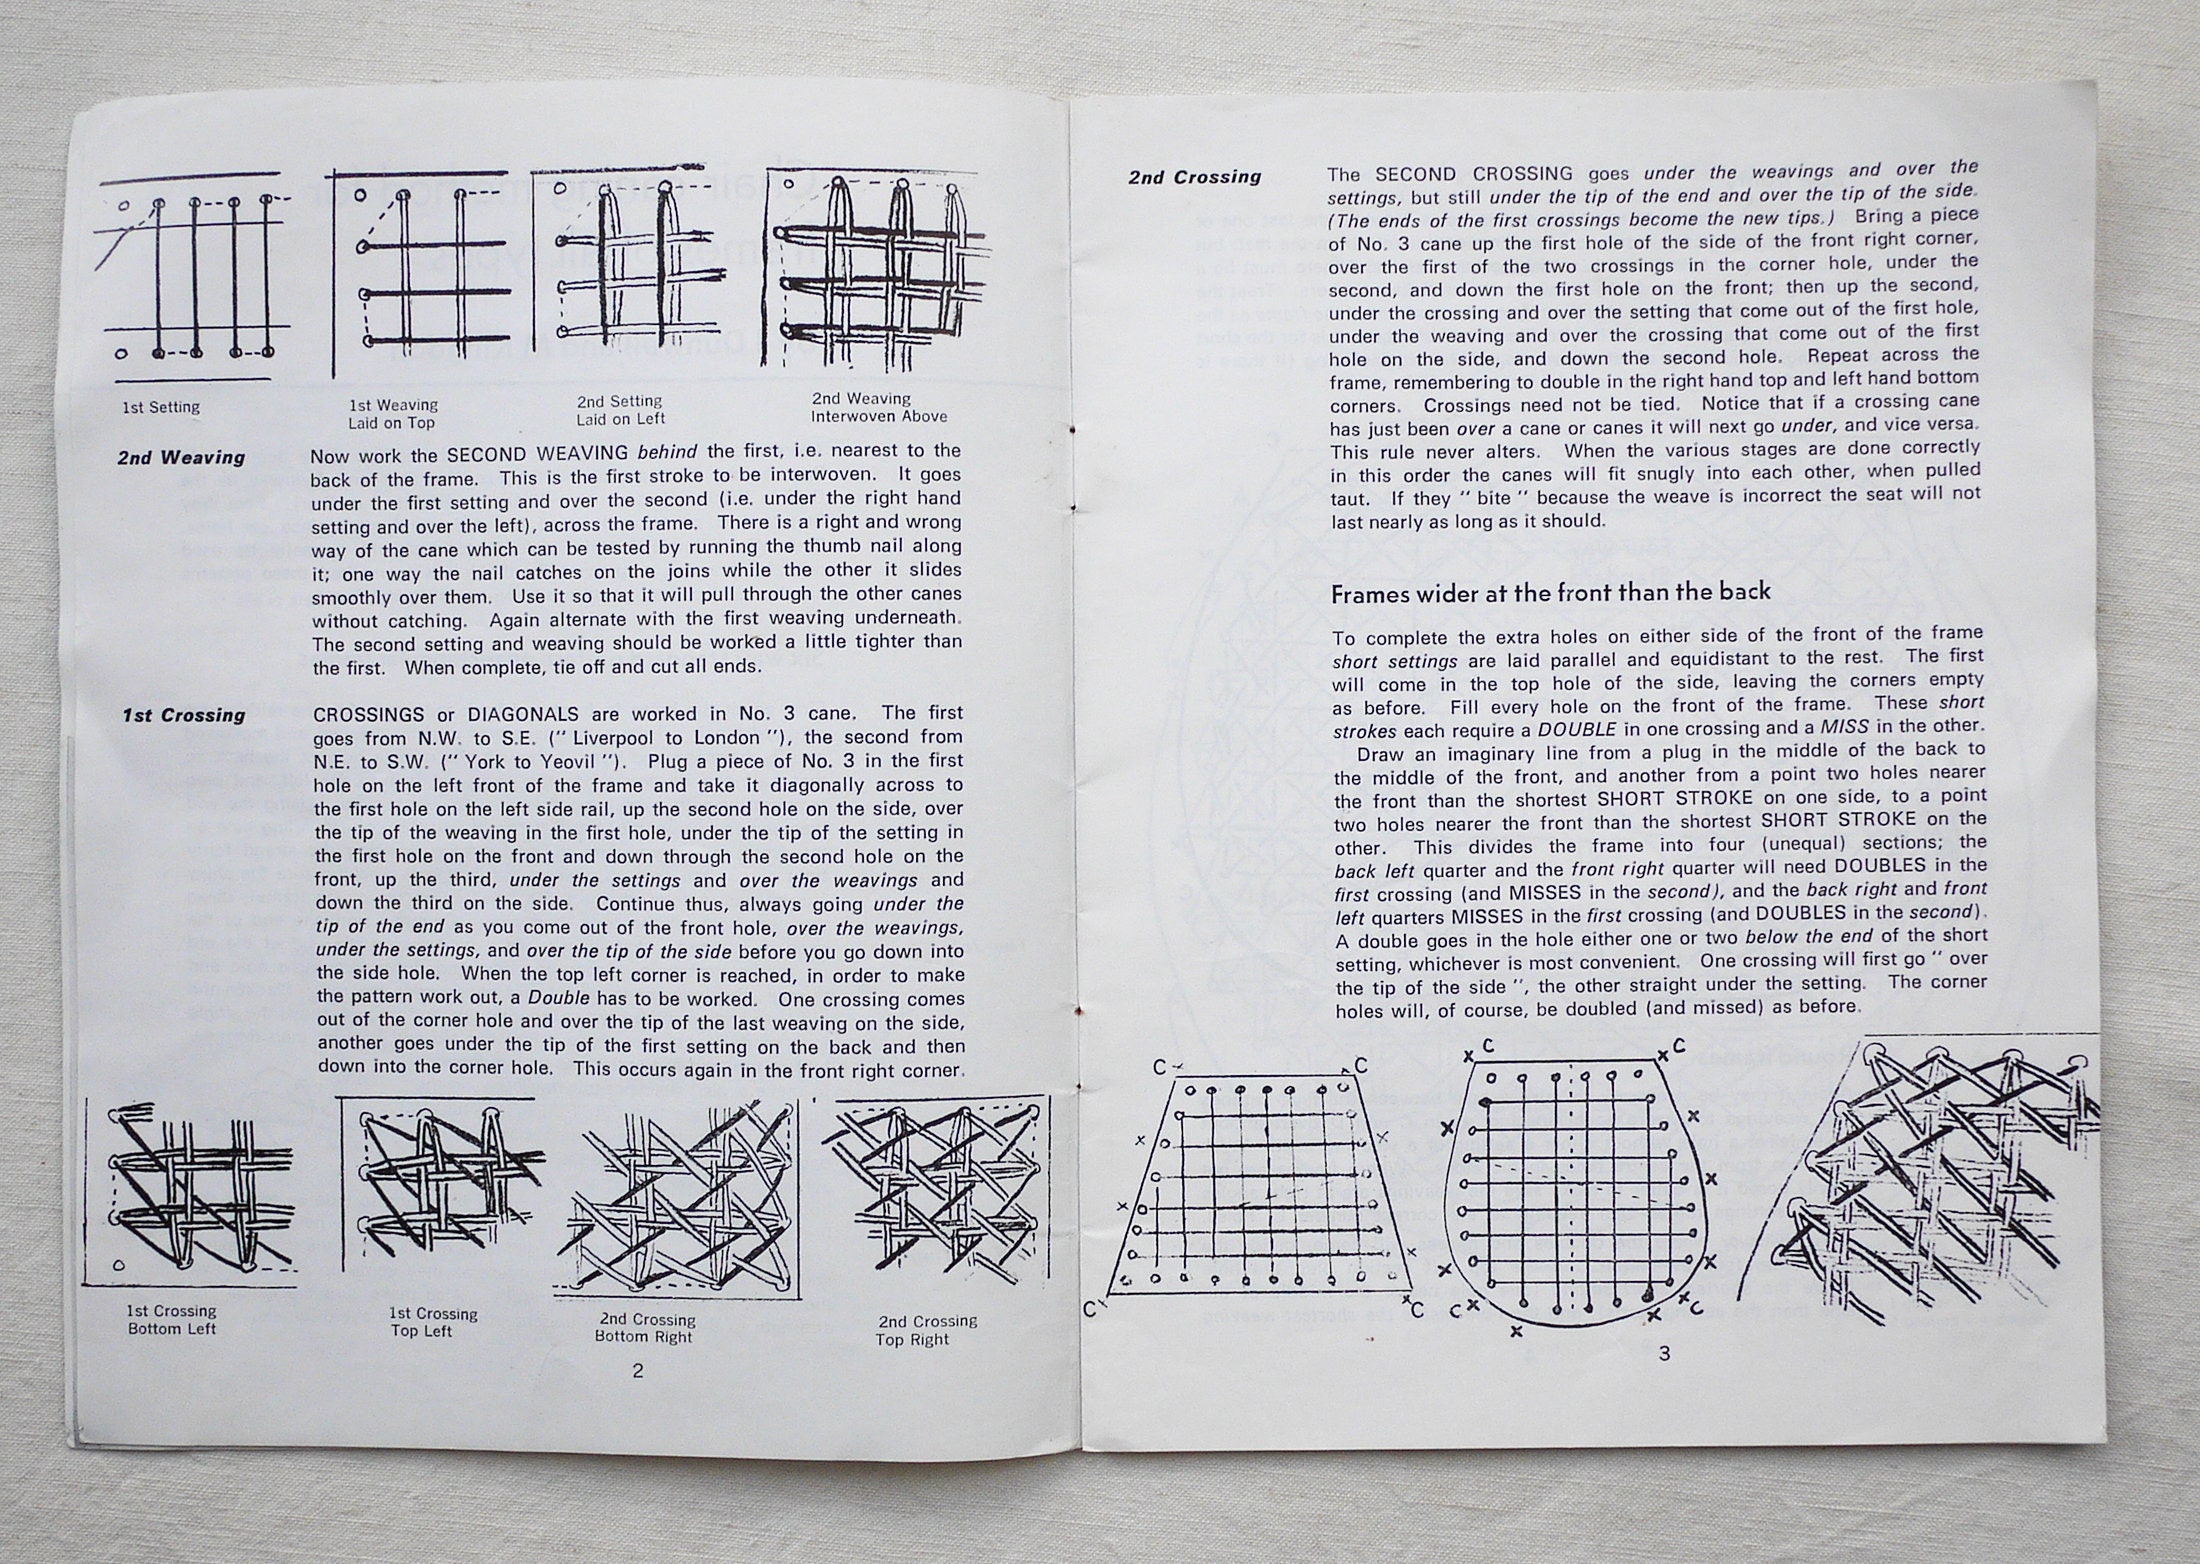 1st Setting
1st Weaving
Laid on Top
2nd Setting
Laid on Left
2nd Weaving
Interwoven Above
2nd Weaving
Now work the SECOND WEAVING behind the first, i.e. nearest to the
back of the frame. This is the first stroke to be interwoven. It goes
under the first setting and over the second (i.e. under the right hand
setting and over the left), across the frame. There is a right and wrong
way of the cane which can be tested by running the thumb nail along
it; one way the nail catches on the joins while the other it slides
smoothly over them. Use it so that it will pull through the other canes
without catching. Again alternate with the first weaving underneath.
The second setting and weaving should be worked a little tighter than
the first. When complete, tie off and cut all ends.
1st Crossing
CROSSINGS or DIAGONALS are worked in No. 3 cane. The first
goes from N.W. to S.E. (" Liverpool to London "), the second from
N.E. to S.W. (" York to Yeovil "). Plug a piece of No. 3 in the first
hole on the left front of the frame and take it diagonally across to
the first hole on the left side rail, up the second hole on the side, over
the tip of the weaving in the first hole, under the tip of the setting in
the first hole on the front and down through the second hole on the
front, up the third, under the settings and over the weavings and
down the third on the side. Continue thus, always going under the
tip of the end as you come out of the front hole, over the weavings,
under the settings, and over the tip of the side before you go down into
the side hole. When the top left corner is reached, in order to make
the pattern work out, a Double has to be worked. One crossing comes
out of the corner hole and over the tip of the last weaving on the side,
another goes under the tip of the first setting on the back and then
down into the corner hole. This occurs again in the front right corner.
1st Crossing
Bottom Left
1st Crossing
Top Left
2nd Crossing
Bottom Right
2nd Crossing
Top Right
2
2nd Crossing
The SECOND CROSSING goes under the weavings and over the
settings, but still under the tip of the end and over the tip of the side.
(The ends of the first crossings become the new tips.) Bring a piece
of No. 3 cane up the first hole of the side of the front right corner,
over the first of the two crossings in the corner hole, under the
second, and down the first hole on the front; then up the second,
under the crossing and over the setting that come out of the first hole,
under the weaving and over the crossing that come out of the first
hole on the side, and down the second hole. Repeat across the
frame, remembering to double in the right hand top and left hand bottom
corners. Crossings need not be tied. Notice that if a crossing cane
has just been over a cane or canes it will next go under, and vice versa.
This rule never alters. When the various stages are done correctly
in this order the canes will fit snugly into each other, when pulled
taut. If they " bite " because the weave is incorrect the seat will not
last nearly as long as it should.
Frames wider at the front than the back
To complete the extra holes on either side of the front of the frame
short settings are laid parallel and equidistant to the rest. The first
will come in the top hole of the side, leaving the corners empty
as before. Fill every hole on the front of the frame. These short
strokes each require a DOUBLE in one crossing and a MISS in the other.
Draw an imaginary line from a plug in the middle of the back to
the middle of the front, and another from a point two holes nearer
the front than the shortest SHORT STROKE on one side, to a point
two holes nearer the front than the shortest SHORT STROKE on the
other. This divides the frame into four (unequal) sections; the
back left quarter and the front right quarter will need DOUBLES in the
first crossing (and MISSES in the second), and the back right and front
left quarters MISSES in the first crossing (and DOUBLES in the second).
A double goes in the hole either one or two below the end of the short
setting, whichever is most convenient. One crossing will first go " over
the tip of the side ", the other straight under the setting. The corner
holes will, of course, be doubled (and missed) as before.
C x x C
x x
x x
C x x C
x C x C
x x
x
x x
C x x x C
x
3